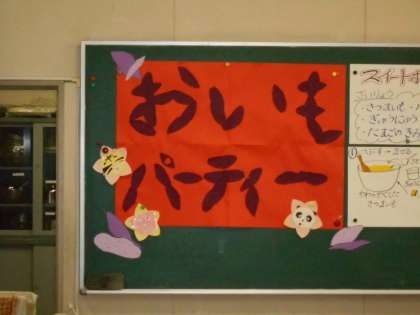 おいも
パーティー
スイート
ざいりょう
・さつまいも
・ぎゅうにゅう
・たまごの
①